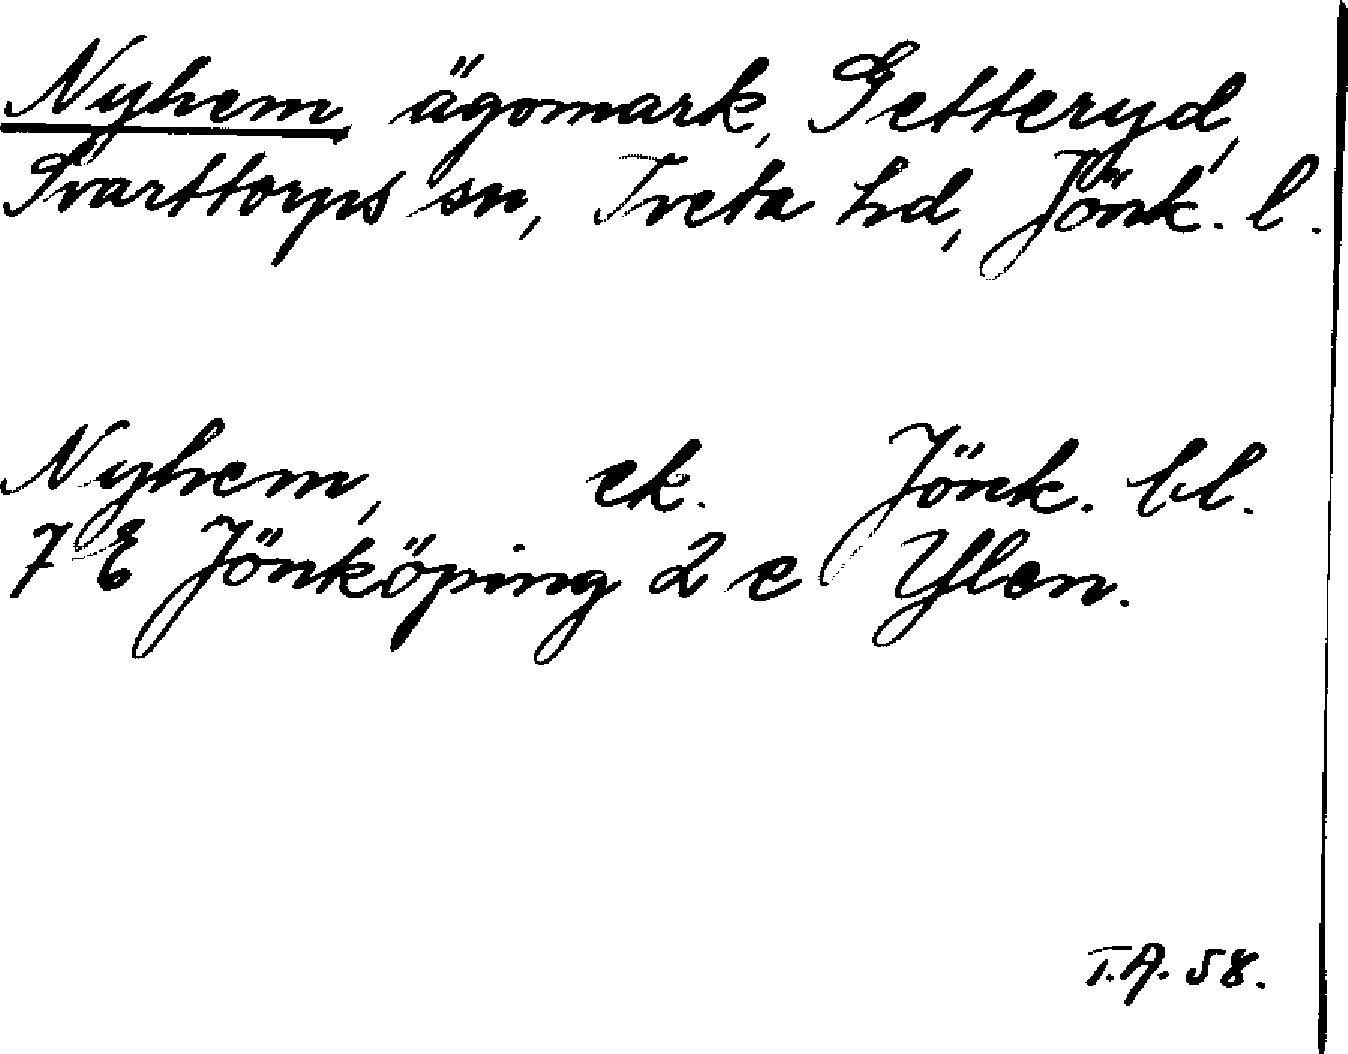 Nyhem, ägomark, Getteryd,
Svarttorps sn, Tveta hd, Jönk. l.
Nyhem, ek. Jönk. bl.
7 E Jönköping 2 e Ylen.
T.A. 58.